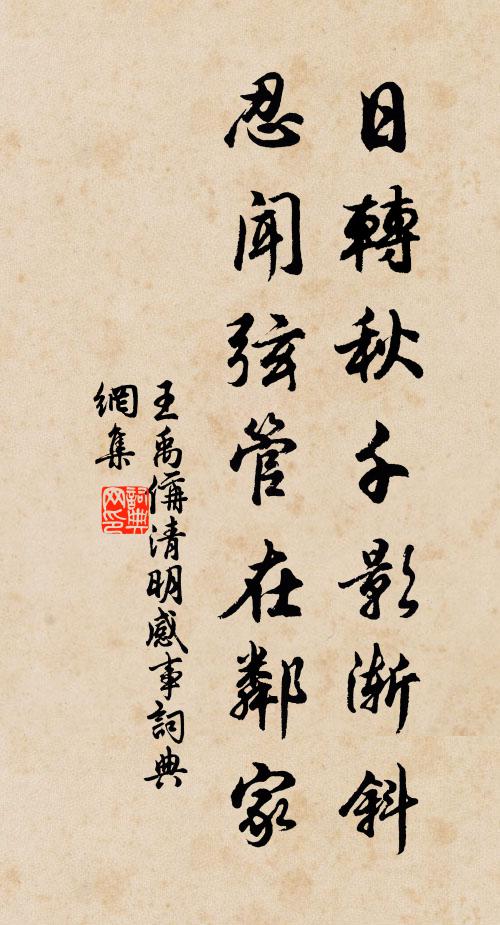 日轉秋千影漸斜
忍聞弦管在鄰家
王禹偁清明感事詞典
網集
詞典
网印